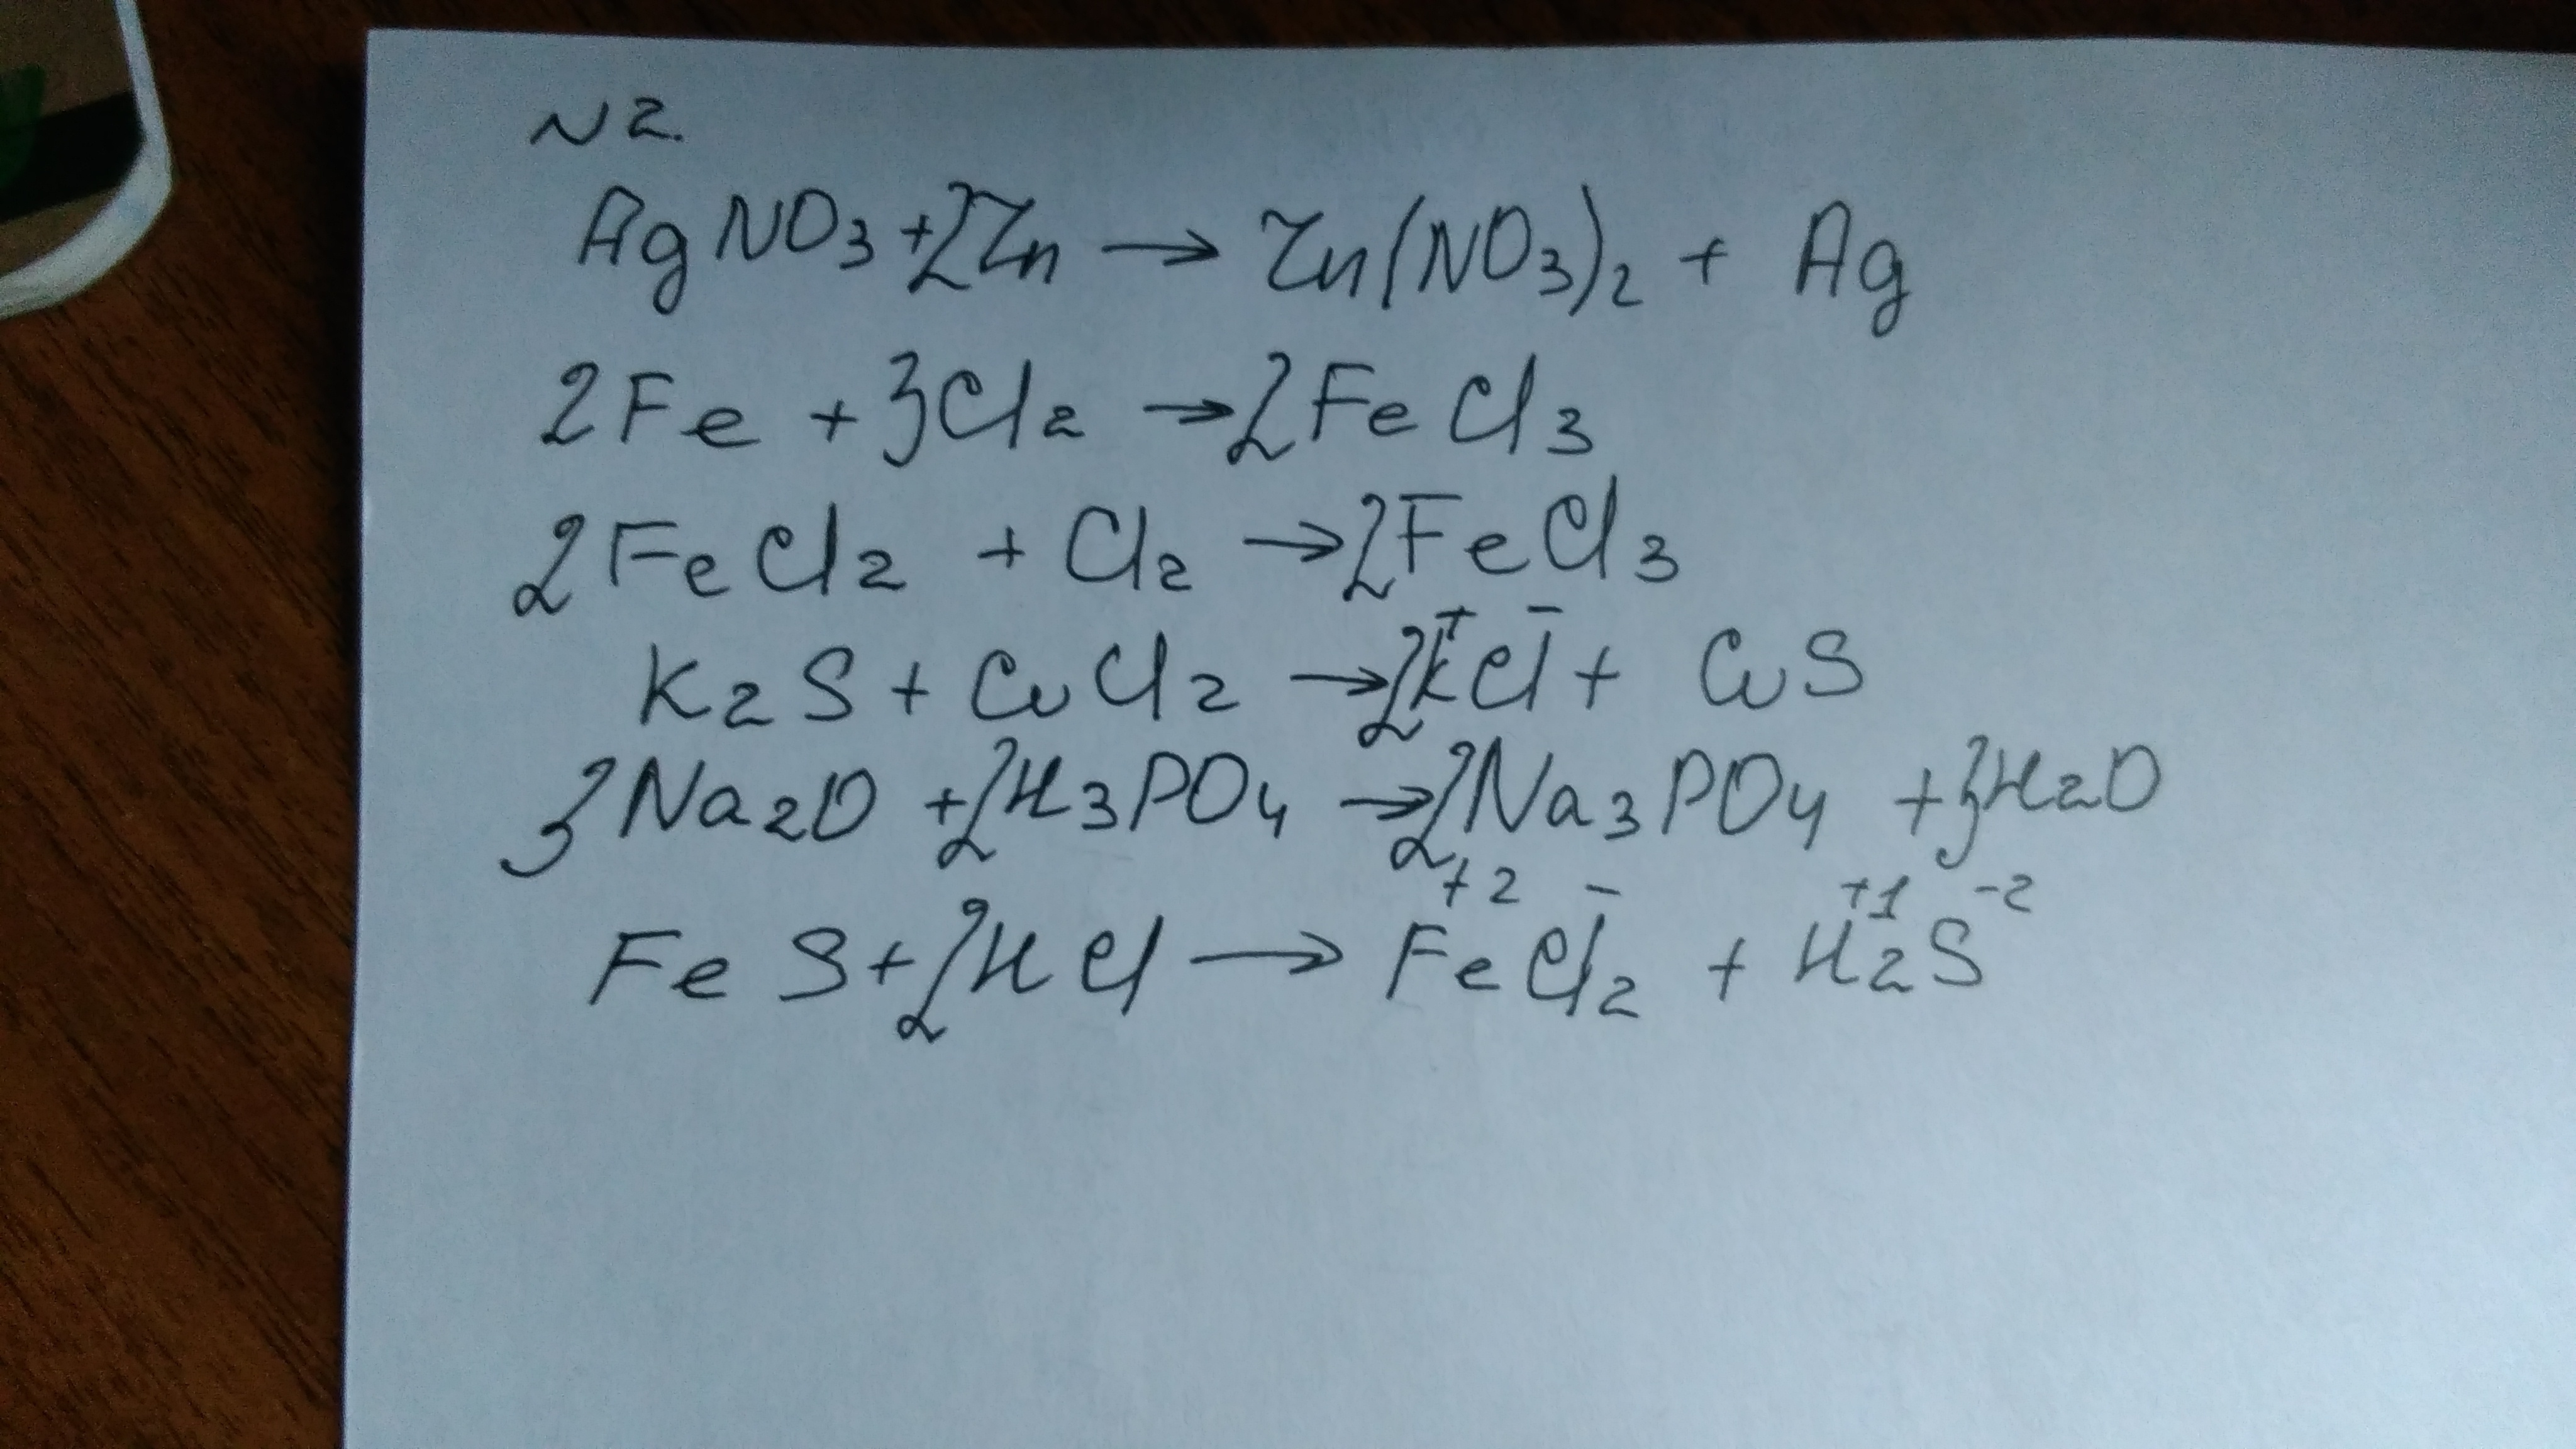 N2.
AgNO₃ + 2Zn → Zn(NO₃)₂ + Ag
2Fe + 3Cl₂ → 2FeCl₃
2FeCl₂ + Cl₂ → 2FeCl₃
K₂S + CuCl₂ → 2K⁺Cl⁻ + CuS
3Na₂O + 2H₃PO₄ → 2Na₃PO₄ + 3H₂O
FeS + 2HCl → Fe⁺²Cl⁻₂ + H⁺¹₂S⁻²